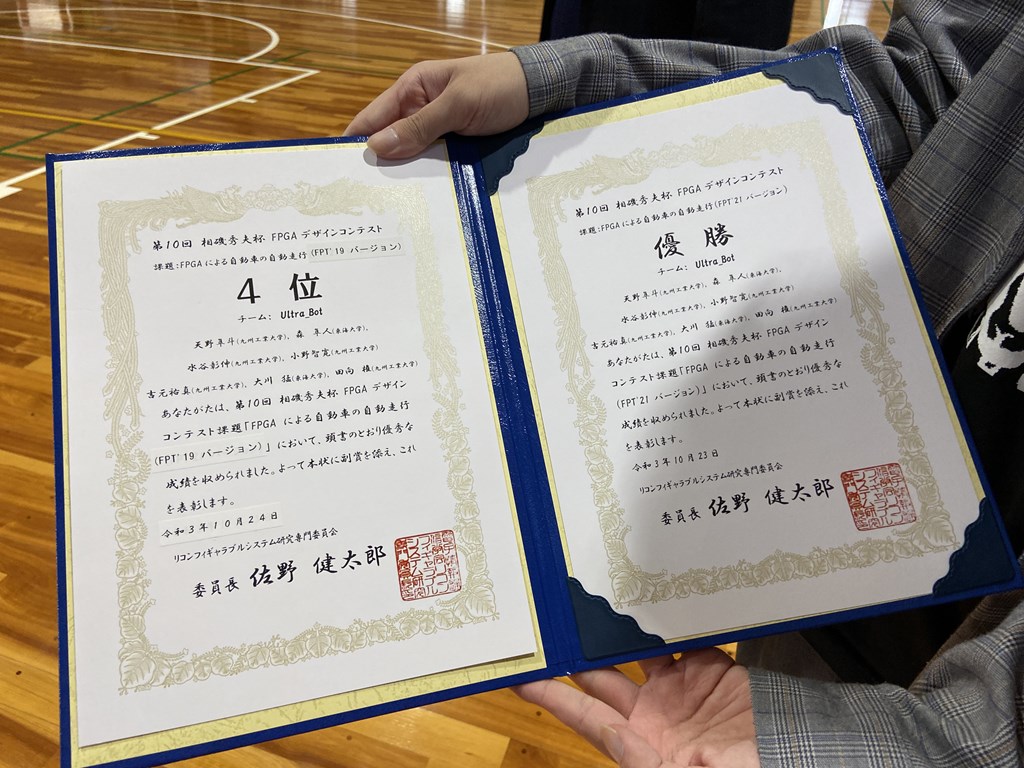 第10回 相磯秀夫杯 FPGA デザインコンテスト
課題:FPGA による自動車の自動走行(FPT'19 バージョン)
4 位
チーム: Ultra_Bot
天野隼斗(九州工業大学)、森 隼人(東海大学)、
水谷彰伸(九州工業大学)、小野智寛(九州工業大学)
吉元裕真(九州工業大学)、大川 猛(東海大学)、田向 権(九州工業大学)
あなたがたは、第10回 相磯秀夫杯 FPGA デザイン
コンテスト課題「FPGA による自動車の自動走行
(FPT'19 バージョン)」において、頭書のとおり優秀な
成績を収められました。よって本状に副賞を添え、これ
を表彰します。
令和3年10月24日
リコンフィギャラブルシステム研究専門委員会
委員長 佐野 健太郎
第10回 相磯秀夫杯 FPGA デザインコンテスト
課題:FPGAによる自動車の自動走行(FPT'21 バージョン)
優 勝
チーム: Ultra_Bot
天野隼斗(九州工業大学)、森 隼人(東海大学)、
水谷彰伸(九州工業大学)、小野智寛(九州工業大学)
吉元裕真(九州工業大学)、大川 猛(東海大学)、田向 権(九州工業大学)
あなたがたは、第10回 相磯秀夫杯 FPGA デザイン
コンテスト課題「FPGA による自動車の自動走行
(FPT'21 バージョン)」において、頭書のとおり優秀な
成績を収められました。よって本状に副賞を添え、これ
を表彰します。
令和3年10月23日
リコンフィギャラブルシステム研究専門委員会
委員長 佐野 健太郎